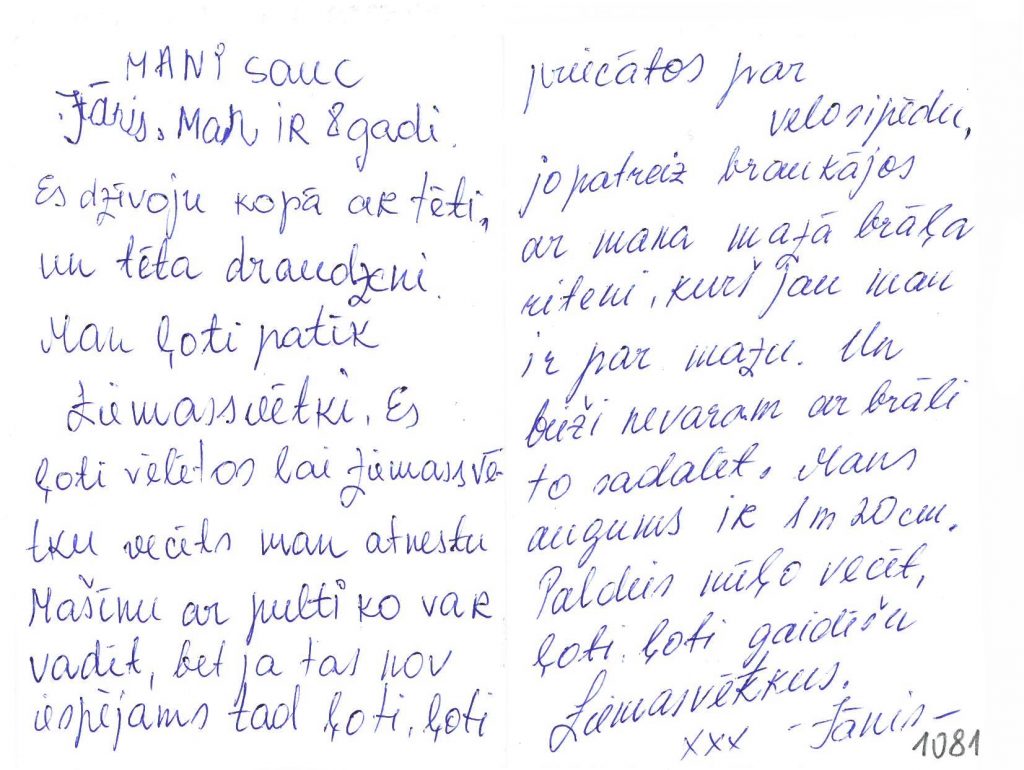 MANI sauc
Jānis. Man iR 8 gadi.
Es dzīvoju kopā aR tēti,
un tēta draudzeni.
Man ļoti patīk
Ziemassvētki. Es
ļoti vēlētos lai ziemassvē-
tku vecīts man atnestu
Mašīnu ar pulti ko vaR
vadīt, bet ja tas nav
iespējams tad ļoti, ļoti
priecātos par
velosipēdu,
jo patreiz braukājos
ar mana mazā brāļa
riteni, kurš jau man
ir par mazu. Un
bieži nevaram ar brāli
to sadalīt. Mans
augums iR 1m 20cm.
Paldies mīļo vecīt,
ļoti, ļoti gaidīšu
Ziemasvētkus.
xxx -Jānis-
1081